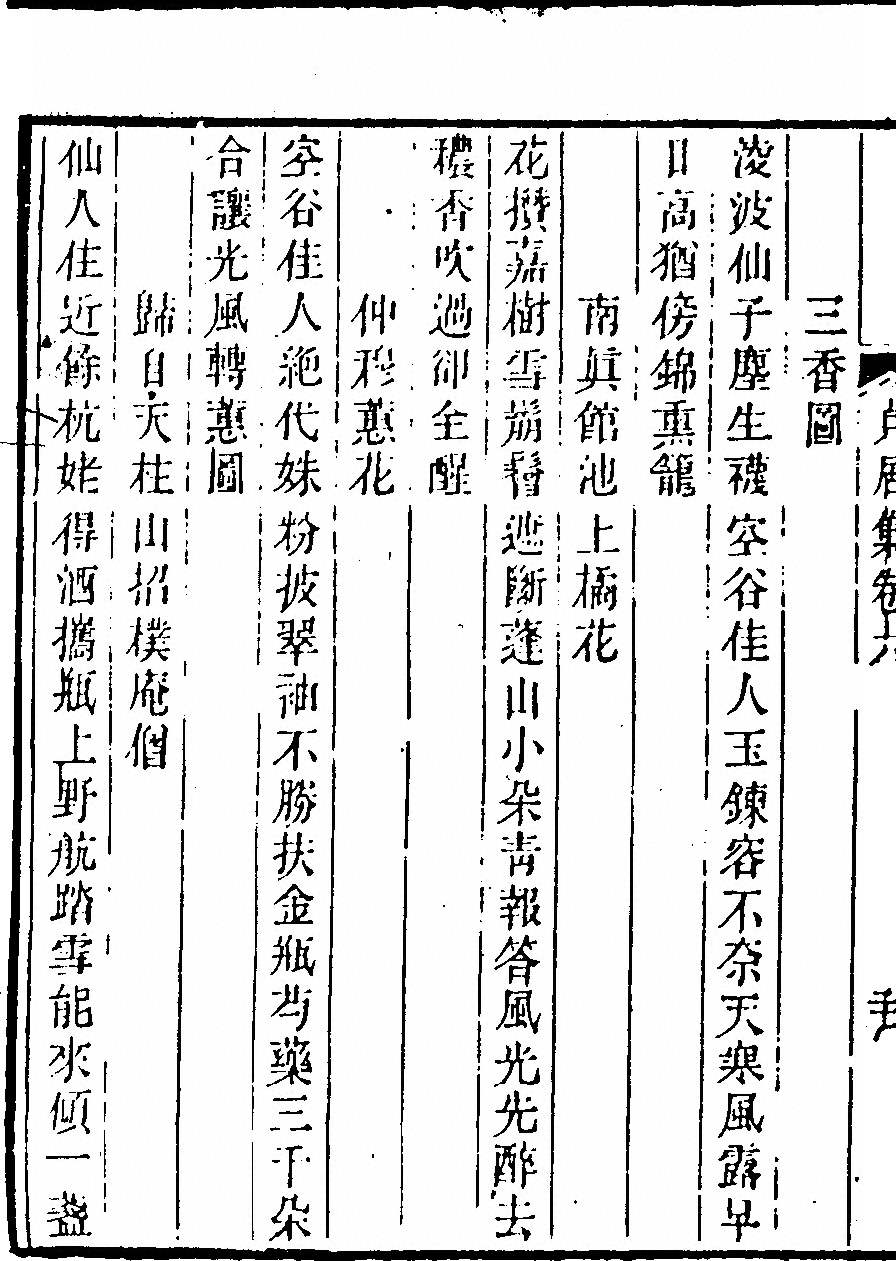 三香圖
淩波仙子塵生襪空谷佳人玉鍊容不奈天寒風露早
日高猶傍錦熏籠
南眞館池上橘花
花攢嘉樹雪崩鬙遮斷蓬山小朵靑報答風光先醉去
穠香吹過卻全醒
仲穆蕙花
空谷佳人絶代姝粉披翠袖不勝扶金瓶芍藥三千朵
合讓光風轉蕙圖
歸自天柱山招樸庵僧
仙人住近餘杭姥得酒攜瓶上野航踏雪能來傾一盞